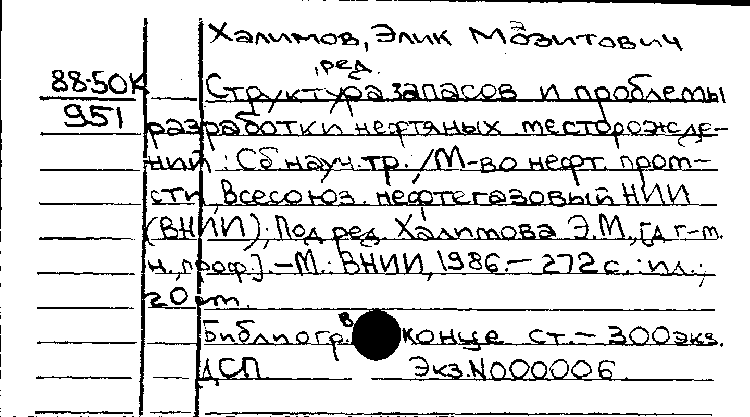 Халимов, Элик Мазитович
, ред.
88-50К Структура запасов и проблемы
951 разработки нефтяных месторожде-
ний : Сб. науч. тр. / М-во нефт. пром-
сти, Всесоюз. нефтегазовый НИИ
(ВНИИ); Под ред. Халимова Э.М., [д. г.-м.
н., проф.]. – М.: ВНИИ, 1986. – 272 с. : ил.;
20 см.
Библиогр. в конце ст. – 300 экз.
ДСП Экз. N000006